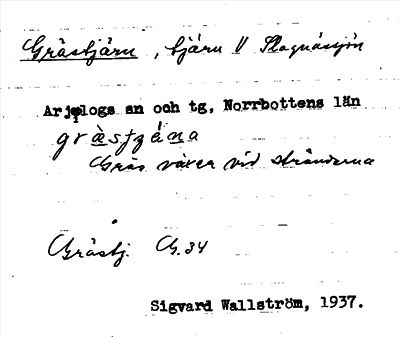 Gråstjärn, tjärn V Slagnässjön
Arjeplogs sn och tg, Norrbottens län
Gräs växer vid stränderna
Grästj. G.34
Sigvard Wallström, 1937.